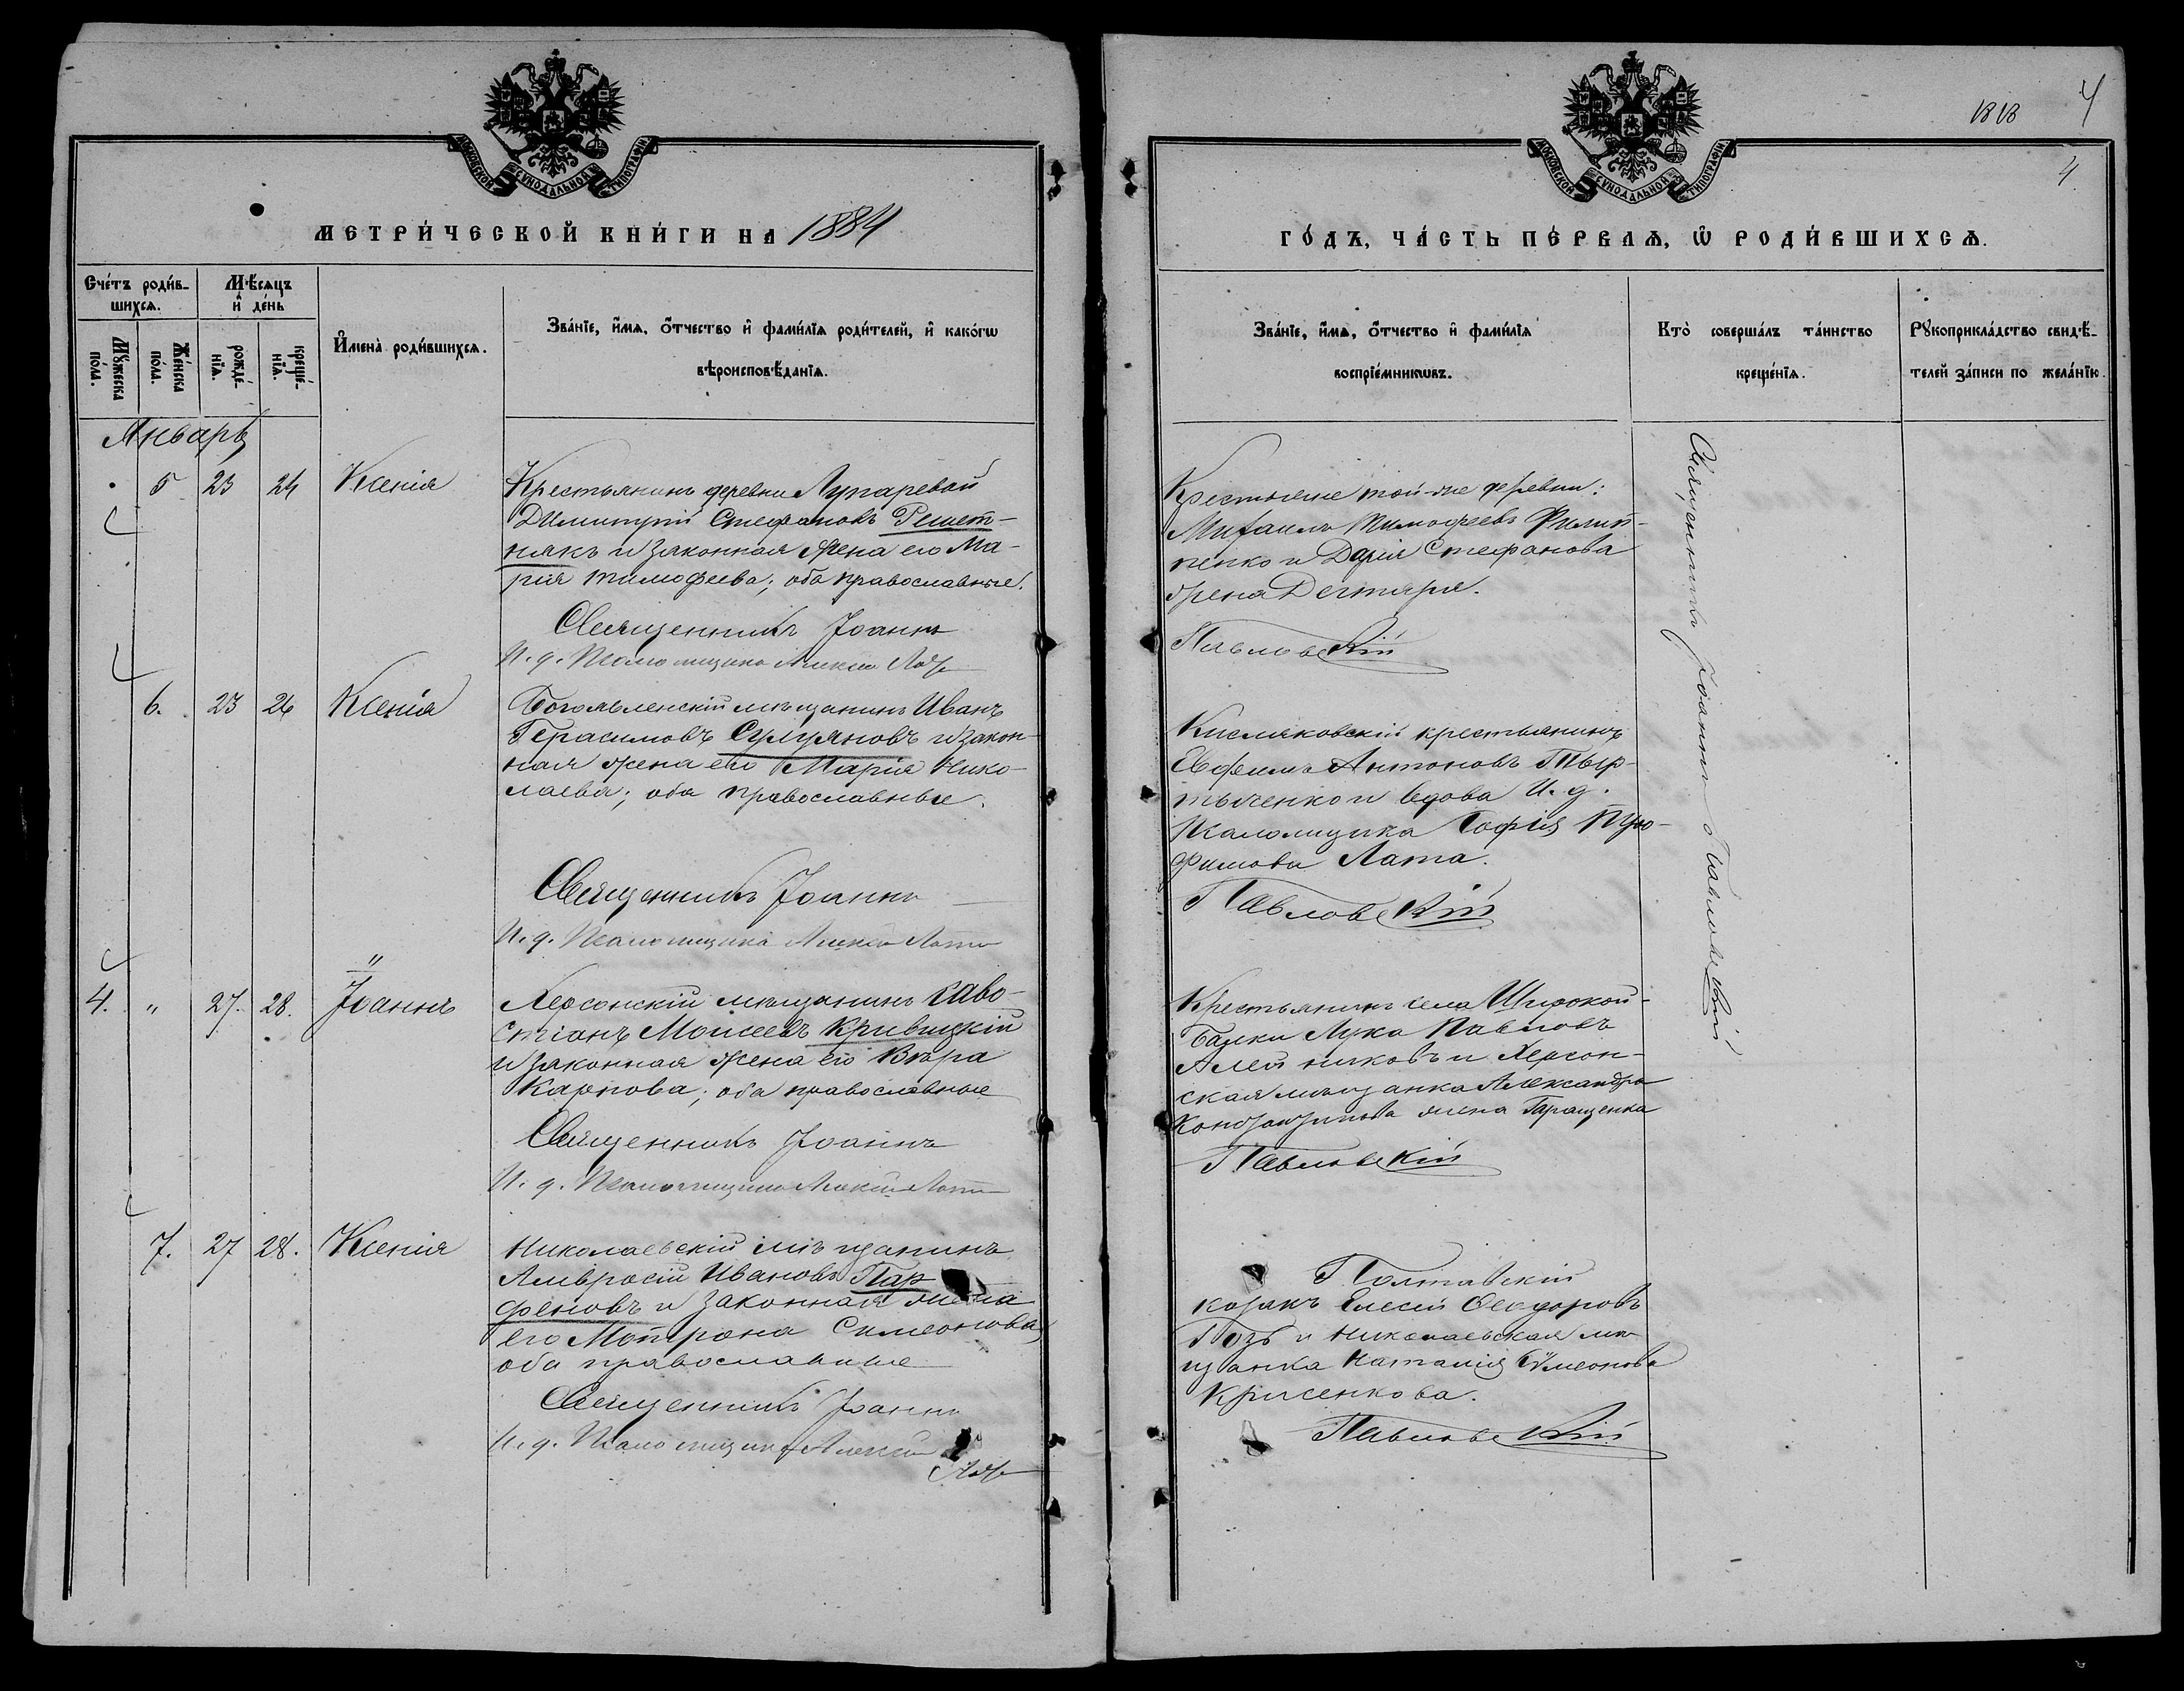 МОСКОВСКОЙ СѴНОДАЛЬНОЙ ТИПОГРАФІИ
МЕТРИ́ЧЕСКОЙ КНИ́ГИ НА 1884
Сче́тъ роди́в-
шихсѧ.
Мѣ́сѧцъ
и҆ де́нь
И҆мена̀ роди́вшихсѧ.
Зва́нїе, и҆́мѧ, ѻ҆́тчество и҆ фами́лїѧ роди́телей, и҆ како́гѡ
вѣроисповѣ́данїѧ.
Мꙋ́жеска
по́ла.
Же́нска
по́ла.
рожде́-
нїѧ.
креще́-
нїѧ.
Январь
5 23 24 Ксенія
Крестьянинъ деревни Лупаревой
Димитрій Стефановъ Решет-
някъ и законная жена его Ма-
рія Тимофеева; оба православные.
Священникъ Іоаннъ
И. д. Псаломщика Алексѣй
6. 23 26 Ксенія
Богоявленскій мѣщанинъ Иванъ
Герасимовъ и закон-
ная жена его Марія Нико-
лаева; оба православные.
Священникъ Іоаннъ
И. д. Псаломщика Алексѣй Лата
4. " 27. 28. Іоаннъ
Херсонскій мѣщанинъ Саво-
стіанъ Моисеевъ Кривицкій
и законная жена его Вѣра
Карпова; оба православные
Священникъ Іоаннъ
И. д. Псаломщика Алексѣй Лата
7. 27 28. Ксенія
Николаевскій мѣщанинъ
Амвросій Ивановъ Пар
феновъ и законная жена
его Мотрона Симеонова,
оба православные
Священникъ Іоаннъ
И. д. Псаломщика Алексѣй
1818 4
4
МОСКОВСКОЙ СѴНОДАЛЬНОЙ ТИПОГРАФІИ
ГО́ДЪ, ЧА́СТЬ ПЕ́РВАѦ, Ѡ҆ РОДИ́ВШИХСѦ.
Зва́нїе, и҆́мѧ, ѻ҆́тчество и҆ фами́лїѧ
воспрїе́мникѡвъ.
Кто̀ соверша́лъ та́инство
креще́нїѧ.
Рꙋкоприкла́дство свидѣ́-
телей за́писи по жела́нїю.
Крестьяне той-же деревни:
Михаилъ Тимофеевъ Филип-
пенко и Дарія Стефанова
жена Дегтяря.
Павловскій
Кисляковскій крестьянинъ
Евфеимъ Антоновъ
и вдова И. д.
Псаломщика Софія
Лата.
Павловскій
Крестьянинъ села Широкой-
Балки Лука Павловъ
Алейниковъ и Херсон-
ская мѣщанка Александра
жена Таращенка
Павловскій
Полтавскій
козакъ Елесей Ѳеодоровъ
и Николаевская мѣ
щанка Наталія Сѵмеонова
Крисенкова.
Павловскій
Священникъ Іоаннъ Павловскій